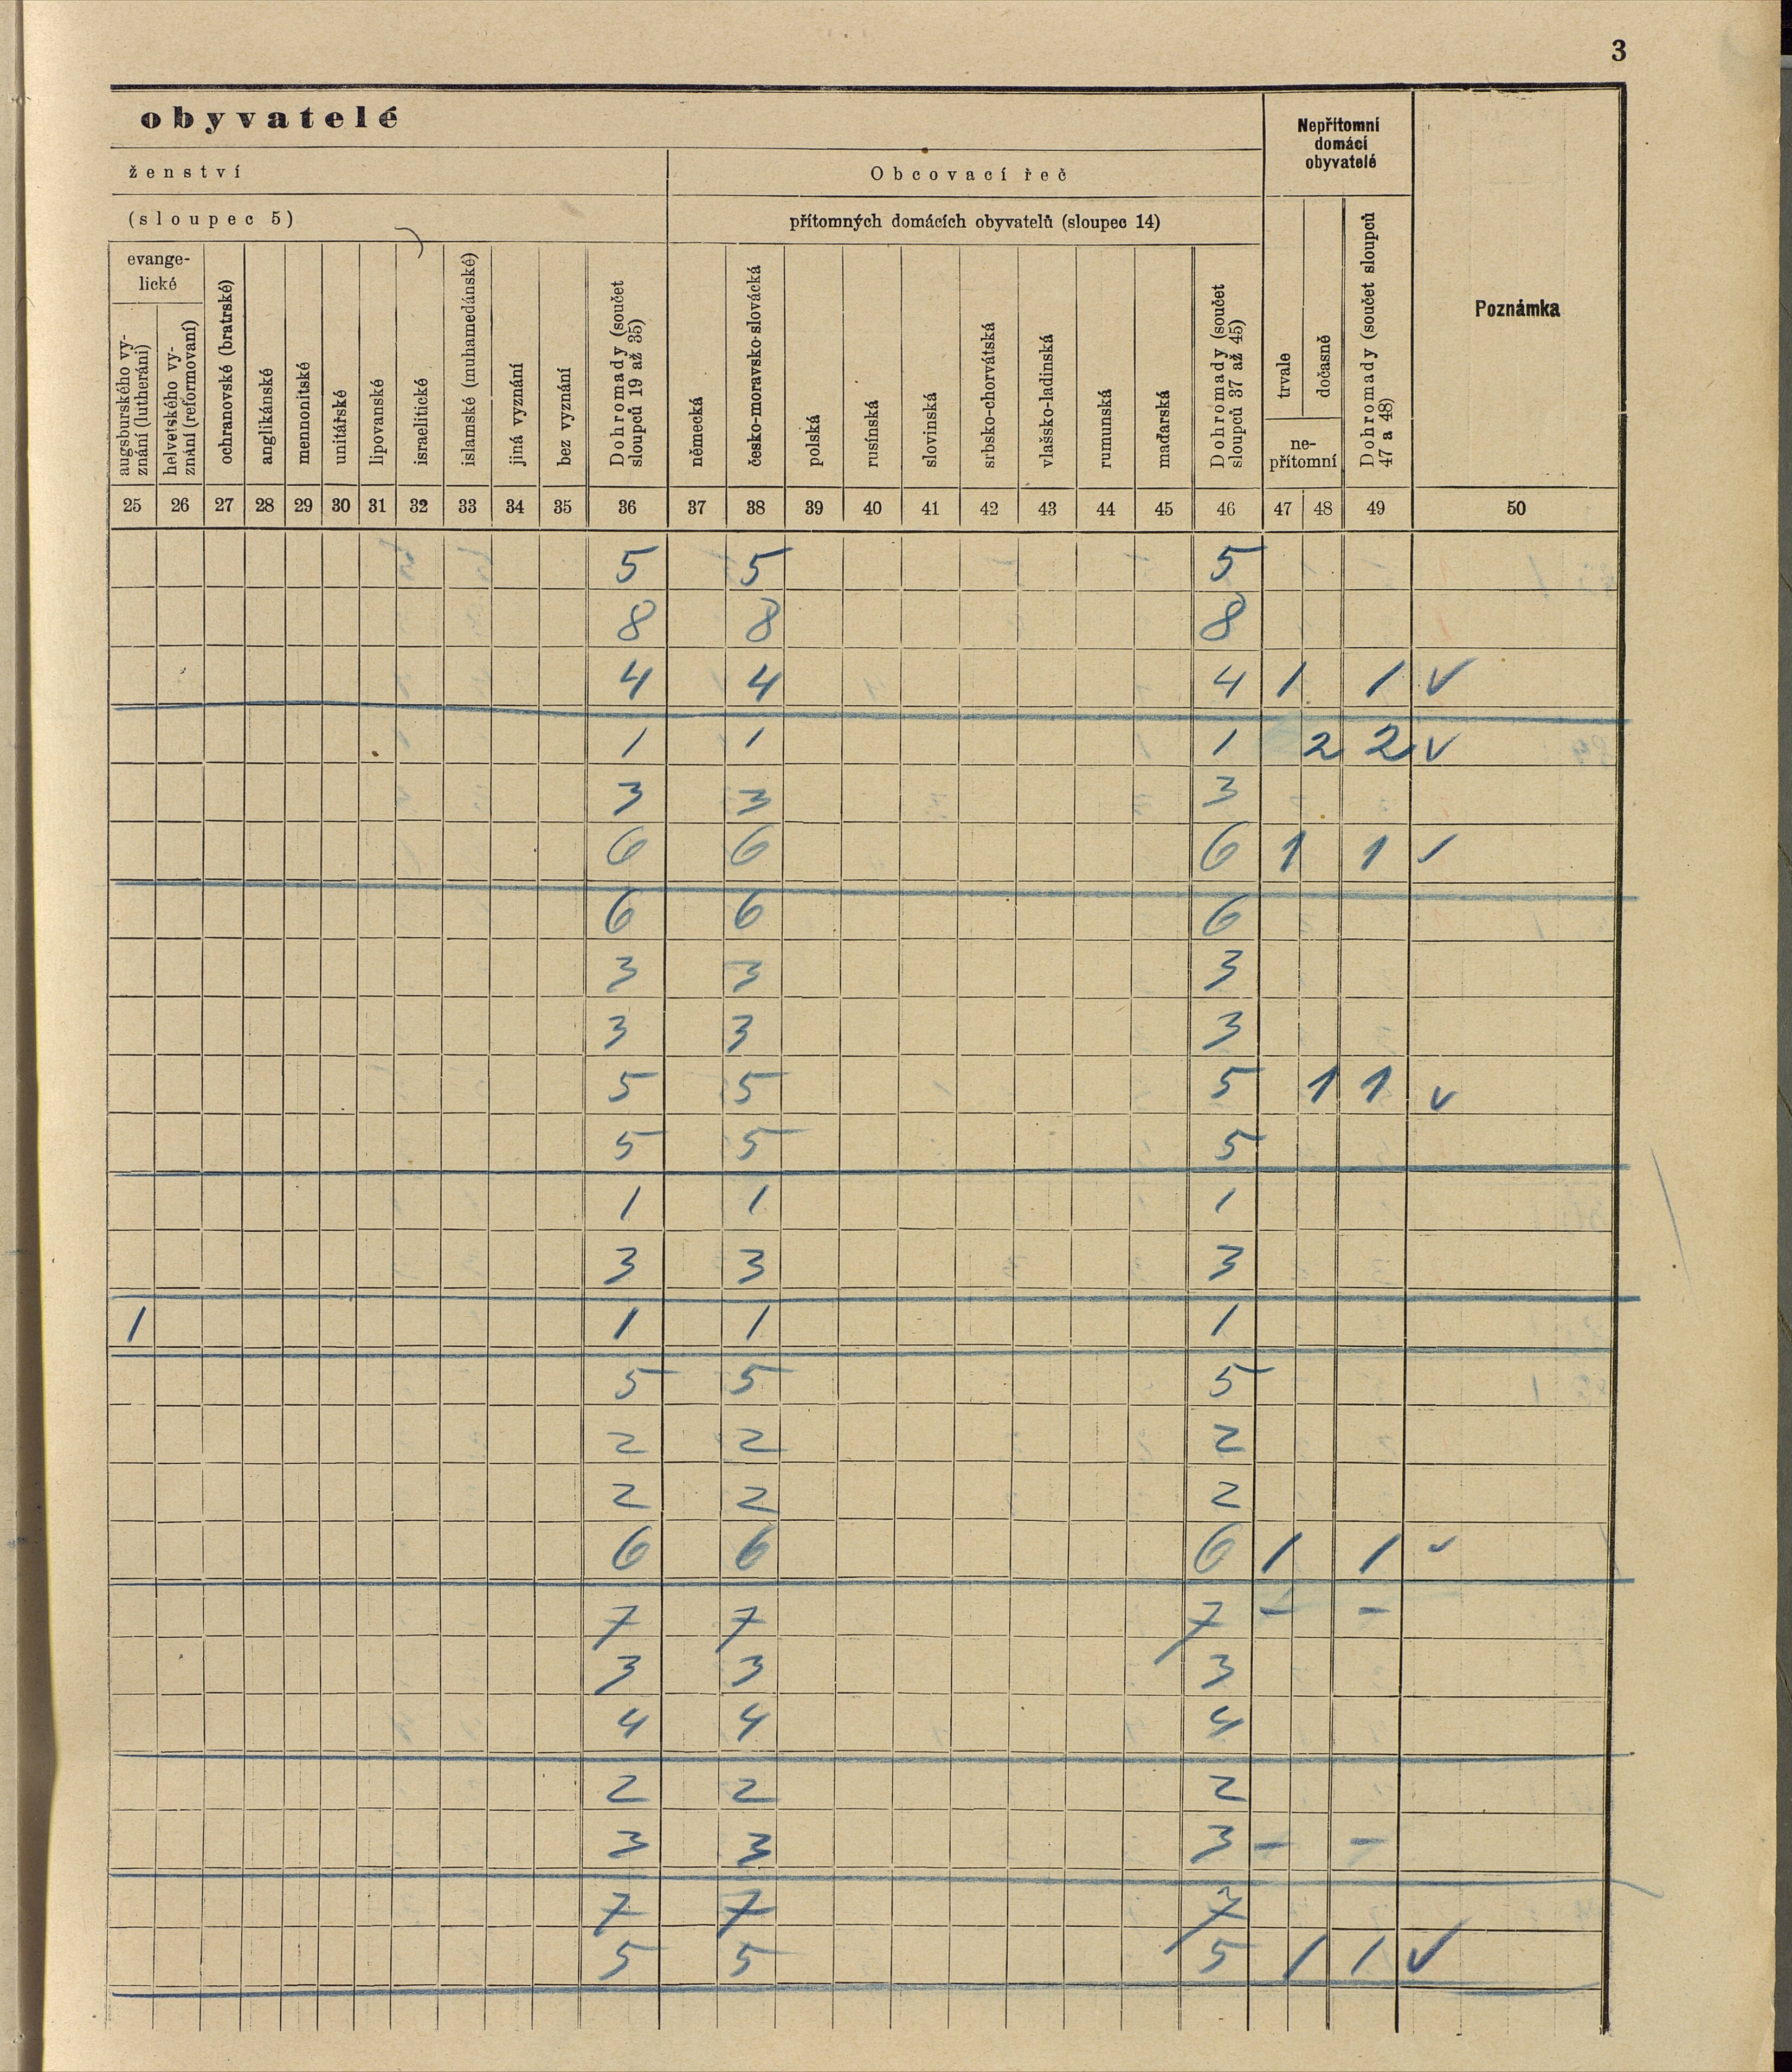 3
obyvatelé
Nepřítomní
domácí
obyvatelé
ženství
Obcovací řeč
(sloupec 5)
přítomných domácích obyvatelů (sloupec 14)
evange-
lické
augsburského vy-
znání (lutheráni)
helvetského vy-
znání (reformovaní)
ochranovské (bratrské)
anglikánské
mennonitské
unitářské
lipovanské
israelitické
islamské (muhamedánské)
jiná vyznání
bez vyznání
Dohromady (součet
sloupců 19 až 35)
německá
česko-moravsko-slovácká
polská
rusínská
slovinská
srbsko-chorvátská
vlašsko-ladinská
rumunská
maďarská
Dohromady (součet
sloupců 37 až 45)
trvale
dočasně
ne-
přítomní
Dohromady (součet sloupců
47 a 48)
Poznámka
25 26 27 28 29 30 31 32 33 34 35 36 37 38 39 40 41 42 43 44 45 46 47 48 49 50
5 5 5
8 8 8
4 4 4 1 1 ✓
1 1 1 2 2 ✓
3 3 3
6 6 6 1 1 ✓
6 6 6
3 3 3
3 3 3
5 5 5 1 1 ✓
5 5 5
1 1 1
3 3 3
1 1 1 1
5 5 5
2 2 2
2 2 2
6 6 6 1 1 ✓
7 7 7 - -
3 3 3
4 4 4
2 2 2
3 3 3 - -
7 7 7
5 5 5 1 1 ✓